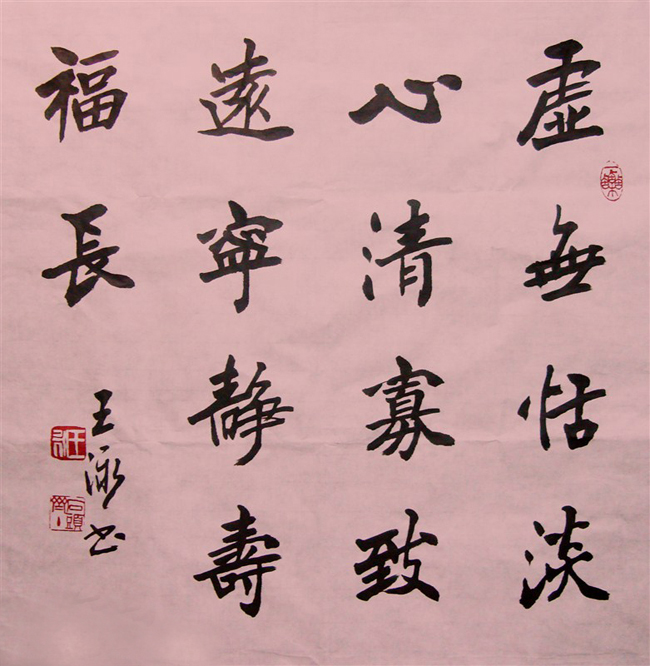 虛無恬淡
心清寡致
遠寧靜壽
福長
王泳书